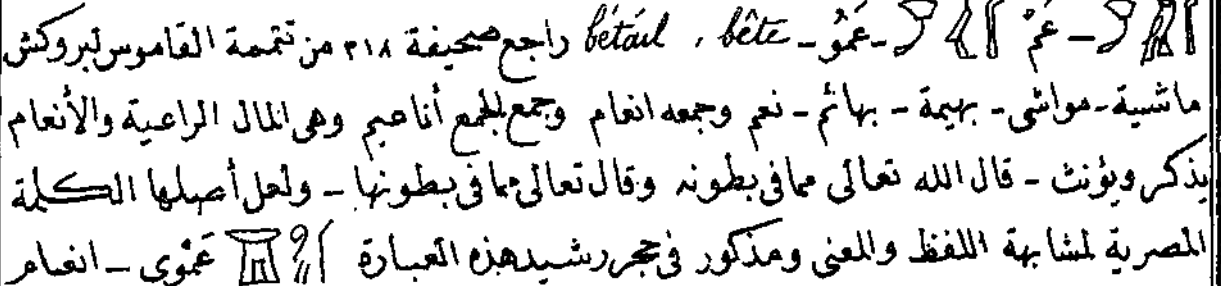 عَمْ - عَمُو - bétail , bête راجع صحيفة ٣١٨ من تتمة القاموس لبروكش
ماشية - مواشى - بهيمة - بهائم - نعم وجمعه انعام وجمع الجمع أناعيم وهى المال الراعية والأنعام
يذكر ويؤنث - قال الله تعالى مما فى بطونه وقال تعالى مما فى بطونها - ولعل أصلها الكلمة
المصرية لمشابهة اللفظ والمعنى ومذكور فى حجر رشيد هذه العبارة عَمْوى - انعام